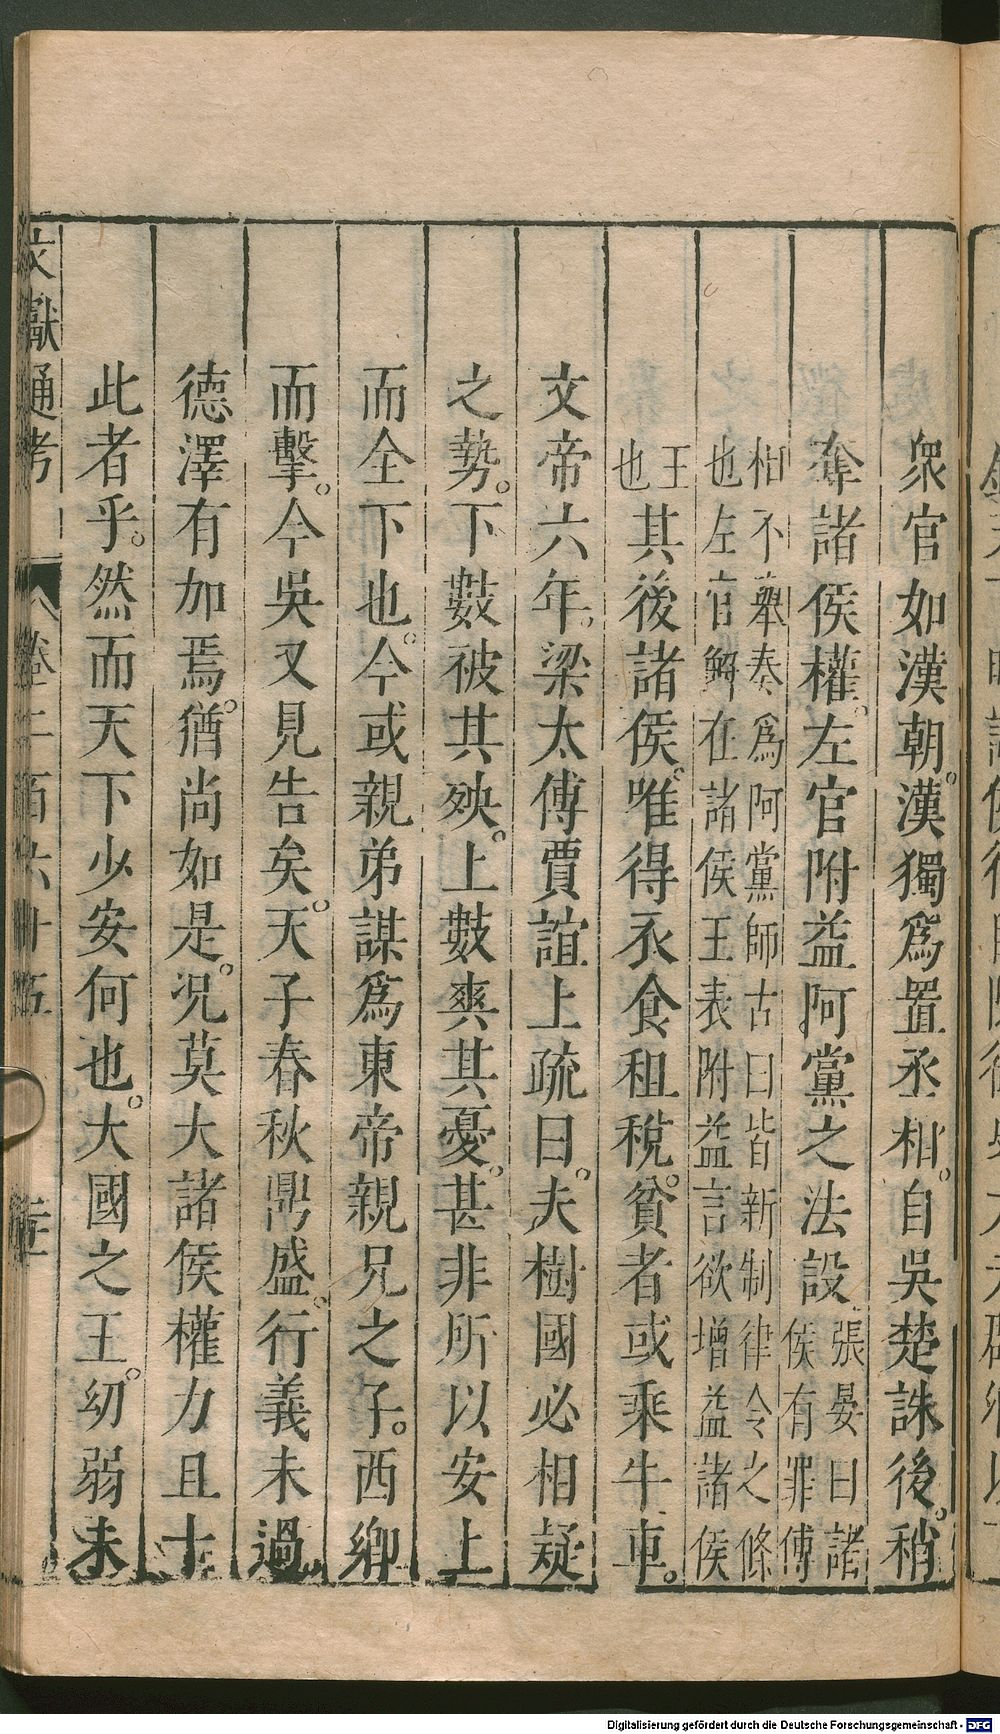 衆官如漢朝。漢獨爲置丞相。自吳楚誅後。稍
奪諸侯權。左官附益阿黨之法設張晏曰諸侯有罪傅
相不舉奏爲阿黨師古曰皆新制律令之條也左官解在諸侯王表附益言欲增益諸侯
王也其後諸侯。唯得衣食租稅。貧者或乘牛車。
文帝六年。梁太傅賈誼上疏曰。夫樹國必相疑
之勢。下數被其殃。上數爽其憂。甚非所以安上
而全下也。今或親弟謀爲東帝親兄之子。西鄉
而擊。今吳又見告矣。天子春秋鼎盛。行義未過
德澤有加焉。猶尚如是。況莫大諸侯權力且十
此者乎。然而天下少安何也。大國之王。幼弱未
文獻通考
卷二百六十五
Digitalisierung gefördert durch die Deutsche Forschungsgemeinschaft - DFG